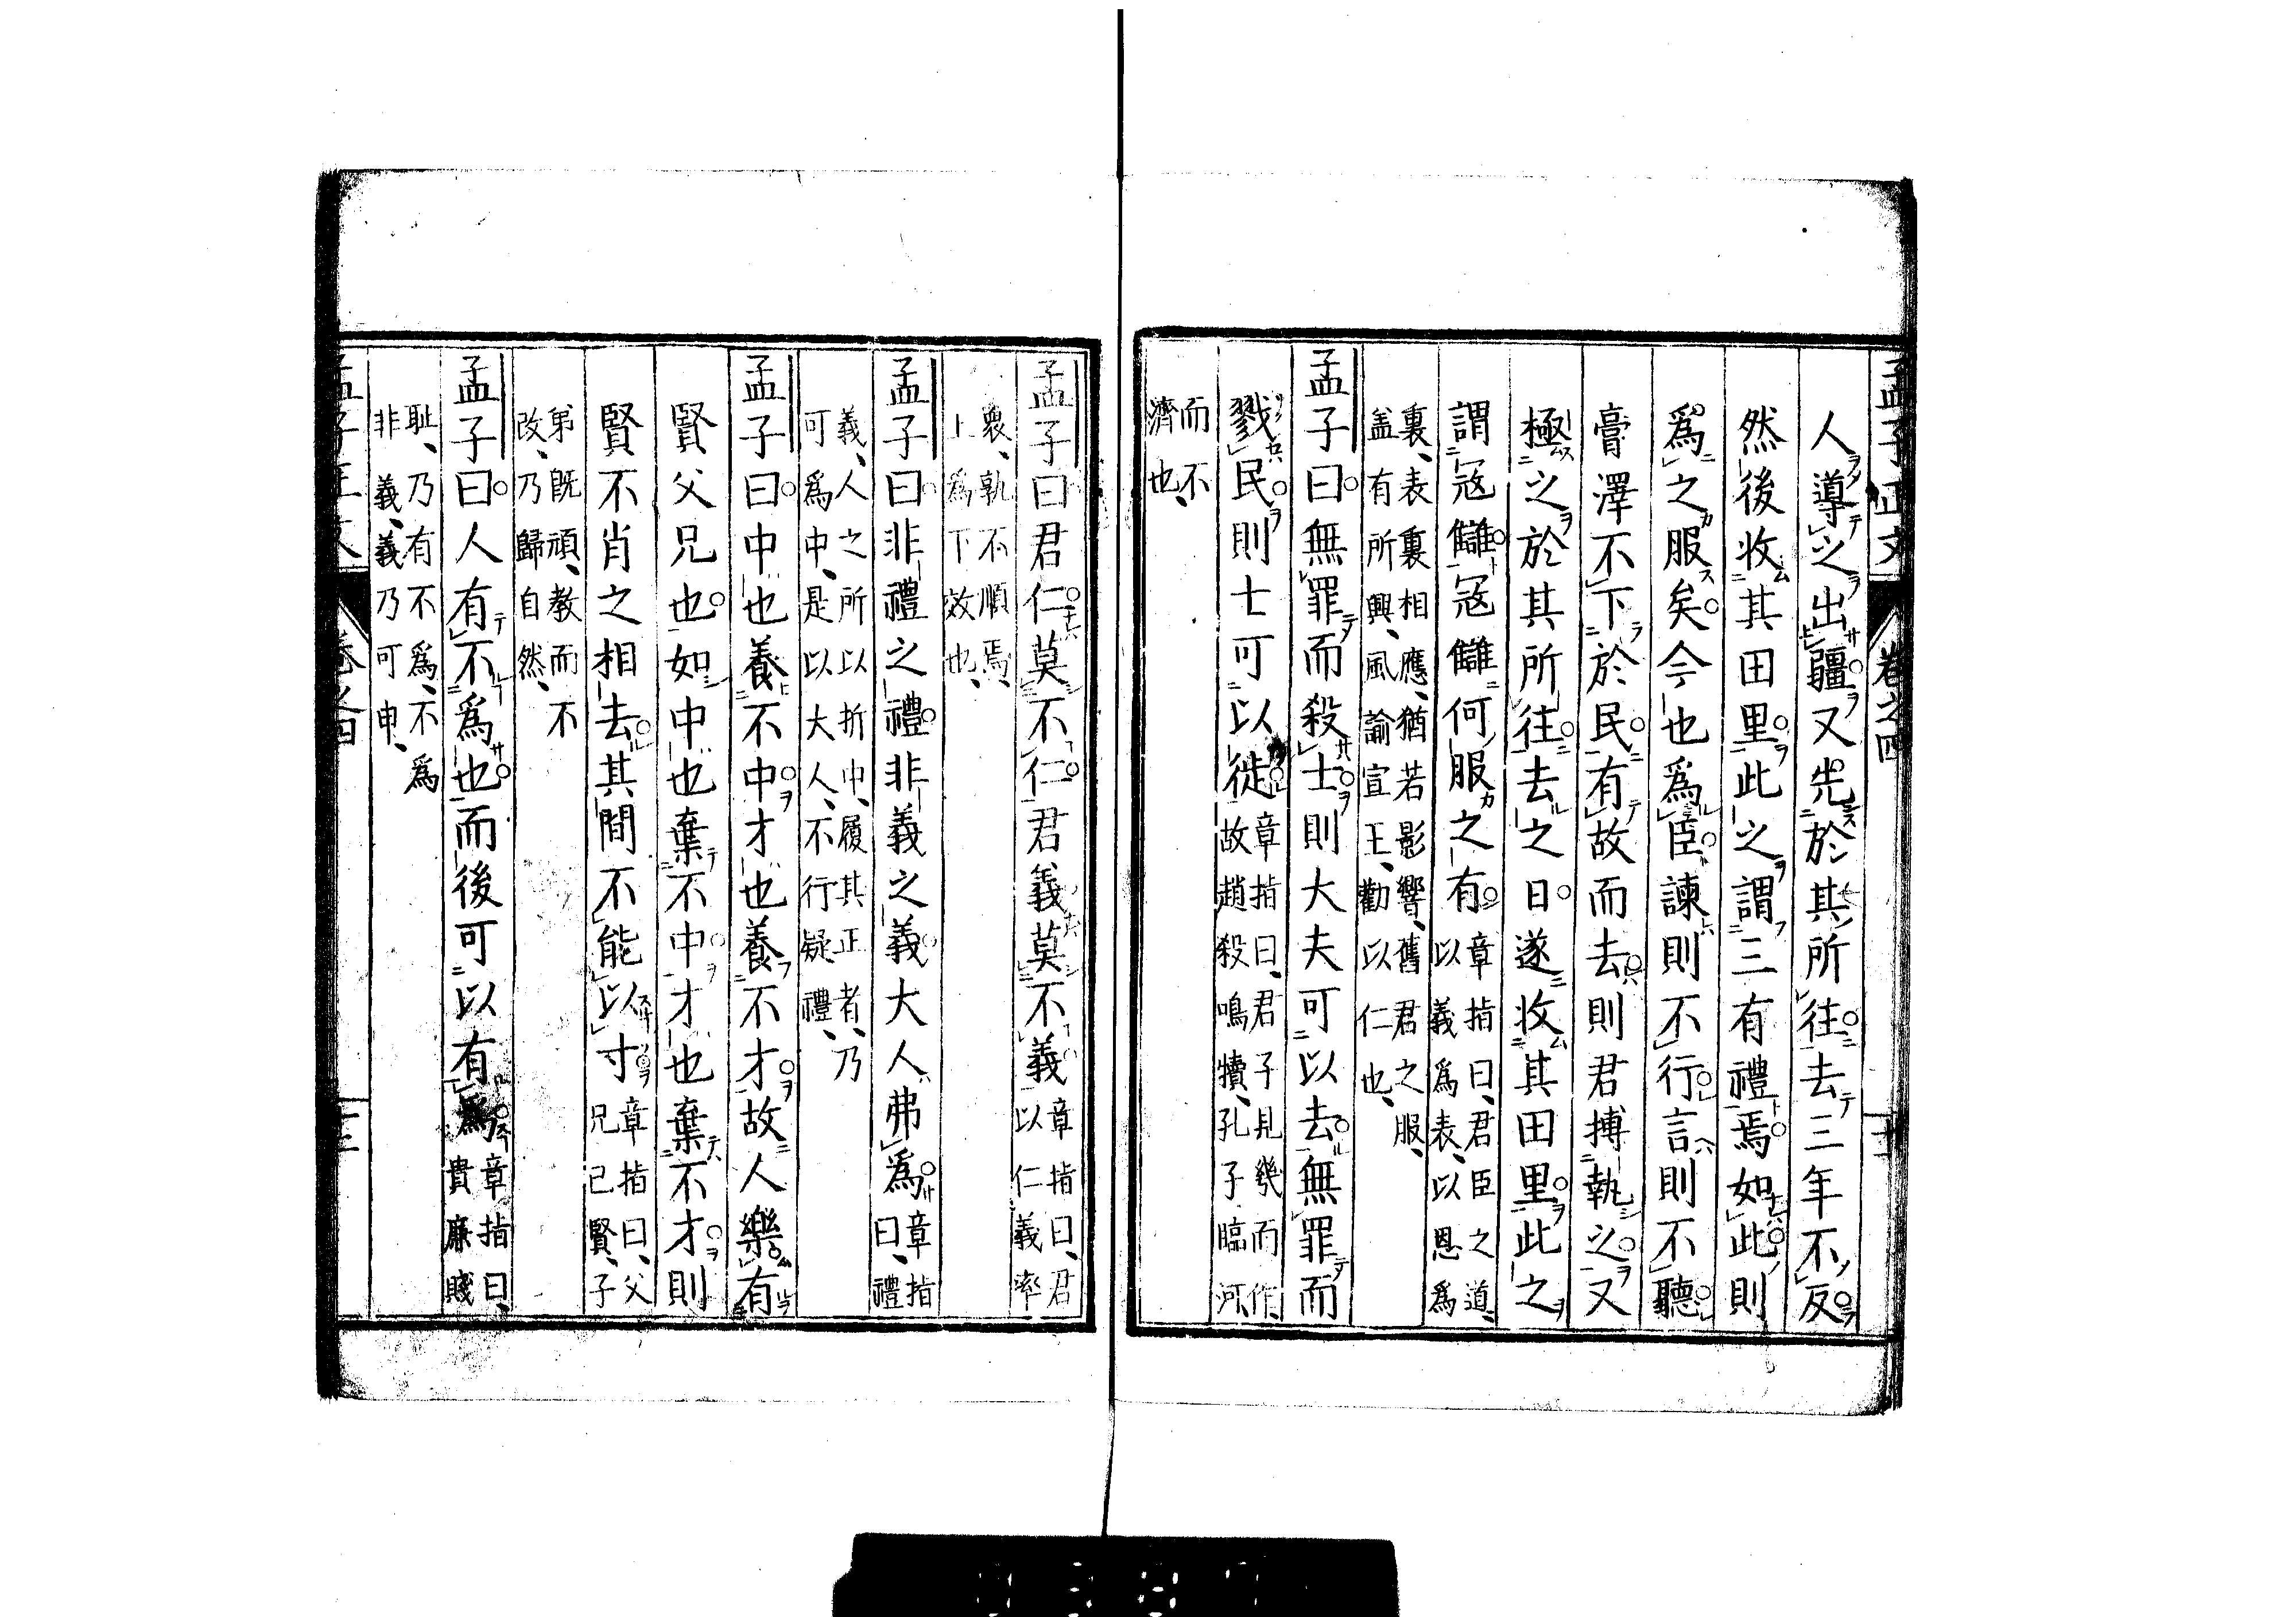 孟子正文 卷之四 十一
人導之出疆又先於其所往去三年不反
然後收其田里此之謂三有禮焉如此則
爲之服矣今也爲臣諫則不行言則不聽
膏澤不下於民有故而去則君搏執之又
極之於其所往去之日遂收其田里此之
謂冦讎冦讎何服之有章指曰、君臣之道、
以義爲表、以恩爲
裏、表裏相應、猶若影響、舊君之服、
盖有所興、風諭宣王、勸以仁也、
孟子曰無罪而殺士則大夫可以去無罪而
戮民則士可以徙章指曰、君子見幾而作、
故趙殺鳴犢、孔子臨河、
而不
濟也、
孟子曰君仁莫不仁君義莫不義章指曰、君
以仁義率
衆、孰不順焉、
上爲下效也、
孟子曰非禮之禮非義之義大人弗爲章指
曰、禮
義、人之所以折中、履其正者、乃
可爲中、是以大人、不行疑禮、
孟子曰中也養不中才也養不才故人樂有
賢父兄也如中也棄不中才也棄不才則
賢不肖之相去其間不能以寸章指曰、父
兄已賢、子
弟既頑、教而不
改、乃歸自然、
孟子曰人有不爲也而後可以有爲章指曰、
貴廉賤
耻、乃有不爲、不爲
非義、義乃可申、